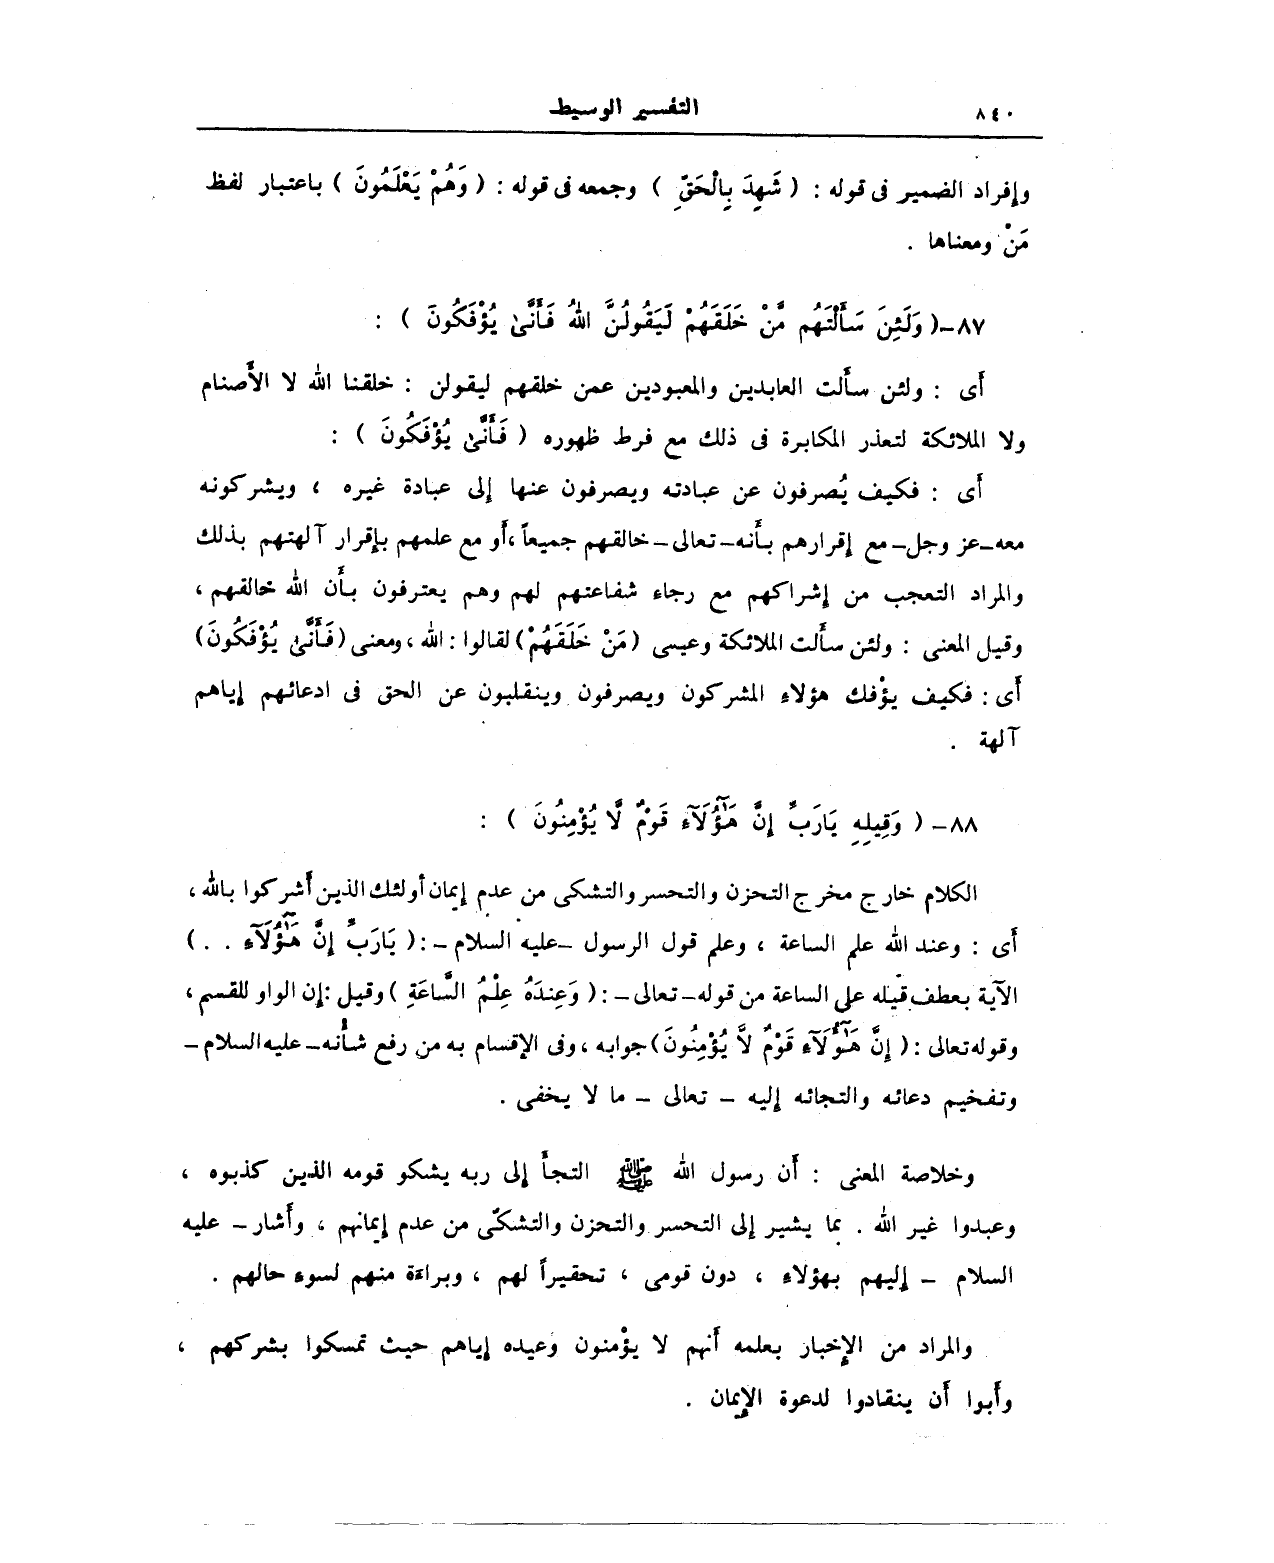 ٨٤٠
التفسير الوسيط
وإفراد الضمير فى قوله : ( شَهِدَ بِالْحَقِّ ) وجمعه فى قوله : ( وَهُمْ يَعْلَمُونَ ) باعتبار لفظ
مَنْ ومعناها .
٨٧ـ( وَلَئِنَ سَأَلْتَهُم مَّنْ خَلَقَهُمْ لَيَقُولُنَّ اللهُ فَأَنَّىٰ يُؤْفَكُونَ ) :
أَى : ولئن سأَلت العابدين والمعبودين عمن خلقهم ليقولن : خلقنا الله لا الأَصنام
ولا الملائكة لتعذر المكابرة فى ذلك مع فرط ظهوره ( فَأَنَّىٰ يُؤْفَكُونَ ) :
أَى : فكيف يُصرفون عن عبادته ويصرفون عنها إلى عبادة غيره ، ويشركونه
معه ـ عز وجل ـ مع إقرارهم بأَنه ـ تعالى ـ خالقهم جميعاً ، أَو مع علمهم بإقرار آلهتهم بذلك
والمراد التعجب من إشراكهم مع رجاء شفاعتهم لهم وهم يعترفون بأَن الله خالقهم ،
وقيل المعنى : ولئن سأَلت الملائكة وعيسى (مَنْ خَلَقَهُمْ) لقالوا : الله ، ومعنى (فَأَنَّىٰ يُؤْفَكُونَ)
أَى : فكيف يؤْفك هؤلاء المشركون ويصرفون وينقلبون عن الحق فى ادعائهم إياهم
آلهة .
٨٨ـ ( وَقِيلِهِ يَارَبِّ إِنَّ هَٰٓؤُلَآءِ قَوْمٌ لَّا يُؤْمِنُونَ ) :
الكلام خارج مخرج التحزن والتحسر والتشكى من عدم إيمان أولئك الذين أَشركوا بالله ،
أَى : وعند الله علم الساعة ، وعلم قول الرسول ـ عليه السلام ـ : ( يَارَبِّ إِنَّ هَٰٓؤُلَآءِ . . )
الآية بعطف قيله على الساعة من قوله ـ تعالى ـ : ( وَعِندَهُ عِلْمُ السَّاعَةِ ) وقيل : إن الواو للقسم ،
وقوله تعالى : ( إِنَّ هَٰٓؤُلَآءِ قَوْمٌ لاَّ يُؤْمِنُونَ) جوابه ، وفى الإقسام به من رفع شأْنه ـ عليه السلام ـ
وتفخيم دعائه والتجائه إليه ـ تعالى ـ ما لا يخفى .
وخلاصة المعنى : أَن رسول الله ﷺ التجأَ إلى ربه يشكو قومه الذين كذبوه ،
وعبدوا غير الله . بما يشير إلى التحسر والتحزن والتشكّى من عدم إيمانهم ، وأَشار ـ عليه
السلام ـ إليهم بهؤلاء ، دون قومى ، تحقيراً لهم ، وبراءَة منهم لسوء حالهم .
والمراد من الإخبار بعلمه أَنهم لا يؤْمنون وعيده إياهم حيث تمسكوا بشركهم ،
وأَبوا أَن ينقادوا لدعوة الإيمان .